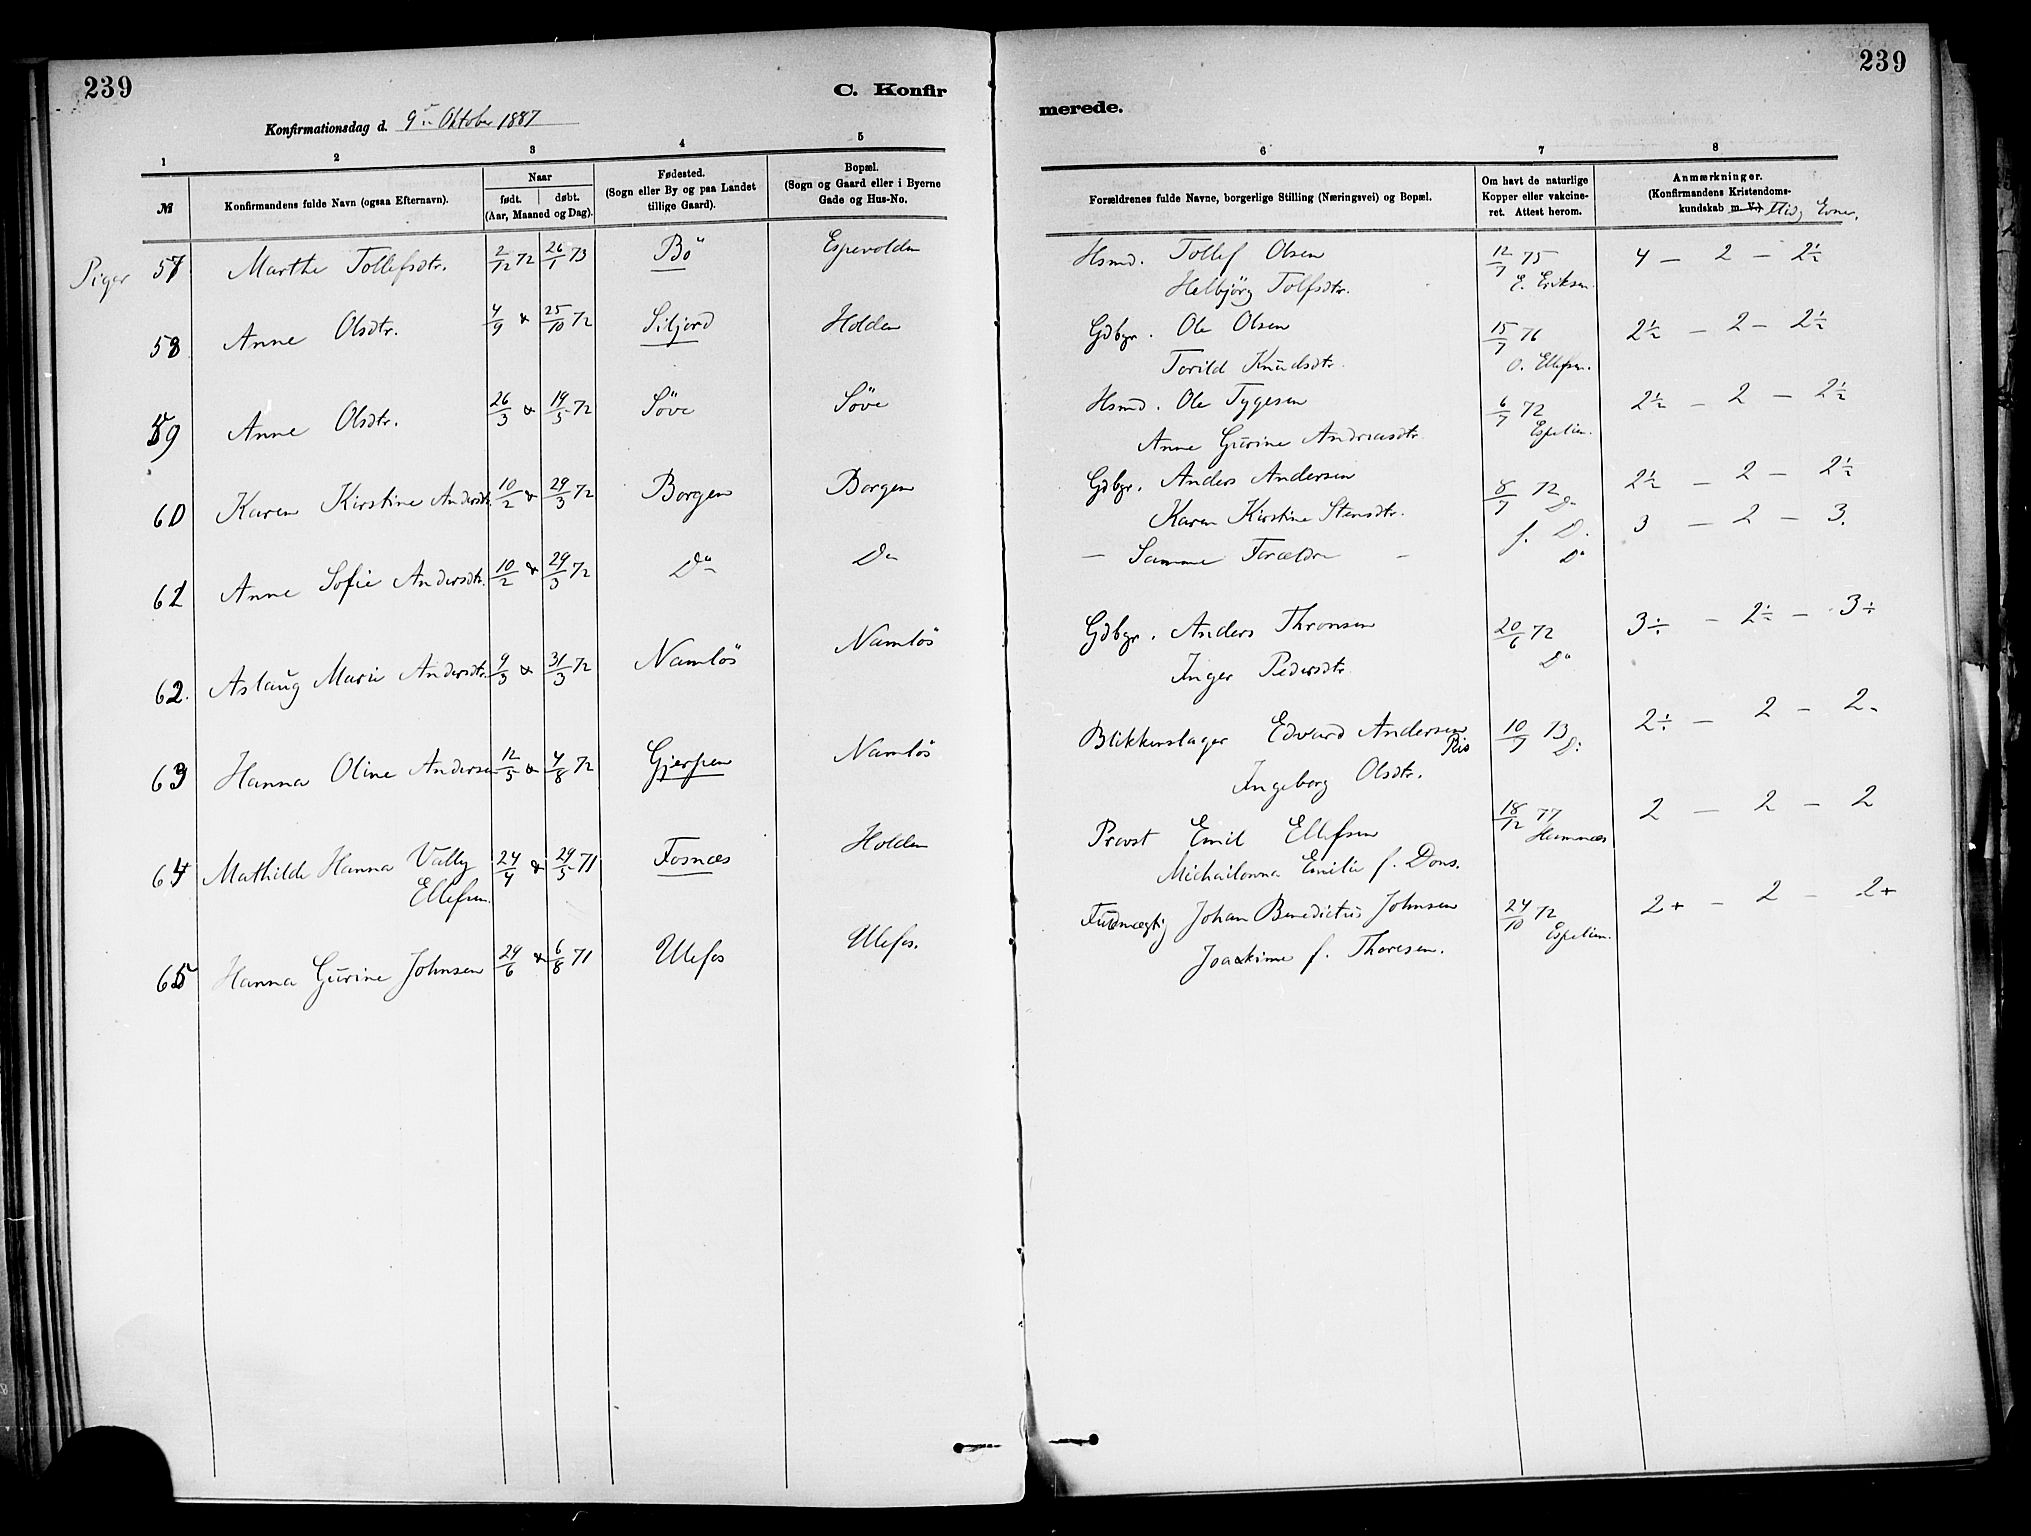 239
C. Konfir
239
merede.
Konfirmationsdag d. 9de Oktober 1887
1 2 3 4 5
6 7 8
№ Konfirmandens fulde Navn (ogsaa Efternavn). Naar født. døbt. (Aar, Maaned og Dag).
Fødested. (Sogn eller By og paa Landet tillige Gaard).
Bopæl. (Sogn og Gaard eller i Byerne Gade og Hus-No.
Forældrenes fulde Navne, borgerlige Stilling (Næringsvei) og Bopæl.
Om havt de naturlige Kopper eller vakcineret. Attest herom.
Anmærkninger. (Konfirmandens Kristendomskundskab m. V.) Flid, Evner.
Piger 57 Marthe Tollefsdtr. 2/12 72 26/1 73 Bö Espevolden Hsmd. Tollef Olsen 12/7 75 4 – 2 – 2½
Helbjörg Tolfsdtr. E. Eriksen.
58 Anne Olsdtr. 4/9 & 25/10 72 Siljord Holden Gdbgr. Ole Olsen 15/7 76 2½ – 2 – 2½
Torild Knudsdtr. O. Ellefsen.
59 Anne Olsdtr. 26/3 & 19/5 72 Söve Söve Hsmd. Ole Tygesen 6/7 72 2½ – 2 – 2½
Anne Gurine Andreasdtr. Espelien.
60 Karen Kirstine Andersdtr. 10/2 & 29/3 72 Borgen Borgen Gdbgr. Anders Andersen 8/7 72 Do 2½ – 2 – 2½
Karen Kirstine Stensdtr.
61 Anne Sofie Andersdtr. 10/2 & 29/3 72 Do Do – Samme Forældre – f. D. Do 3 – 2 – 3.
62. Aslaug Marie Andersdtr. 9/3 & 31/3 72 Namlös Namlös Gdbgr. Anders Thronsen 20/6 72 3÷ – 2÷ – 3÷
Inger Pedersdtr. Do
63 Hanna Oline Andersen 12/5 & 4/8 72 Gjerpen Namlös Blikkenslager Edvard Andersen Ris 10/7 73 D: 2÷ – 2 – 2-
Ingeborg Olsdtr.
64 Mathilde Hanna Vally Ellefsen. 24/4 & 29/5 71 Fosnæs Holden Provst Emil Ellefsen 18/12 77 2 – 2 – 2
Michaelonna Emilie f. Dons. Hamnæs
65 Hanna Gurine Johnsen 24/6 & 6/8 71 Ulefos Ulefos. Fuldmægtig Johan Benedictus Johnsen 24/10 72 2+ – 2 – 2+
Joakime f. Thoresen. Espelien.